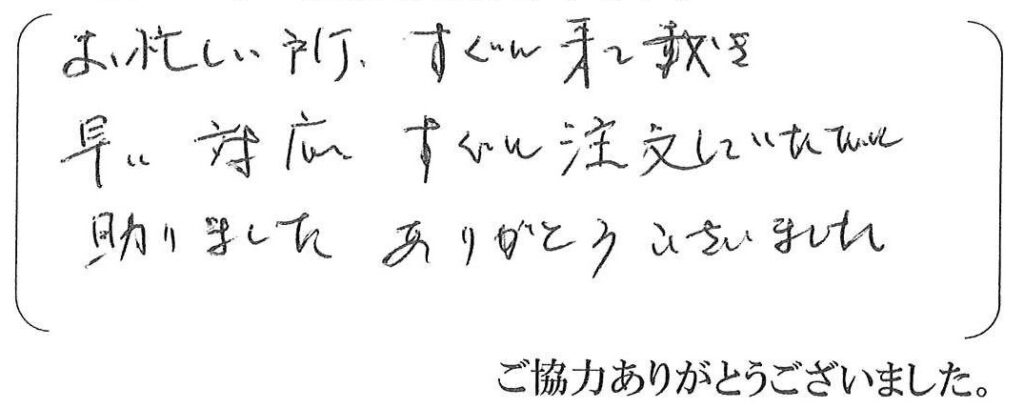 お忙しい所、すぐに来て戴き
早い対応 すぐに注文していただいて
助りました ありがとうございました
ご協力ありがとうございました。